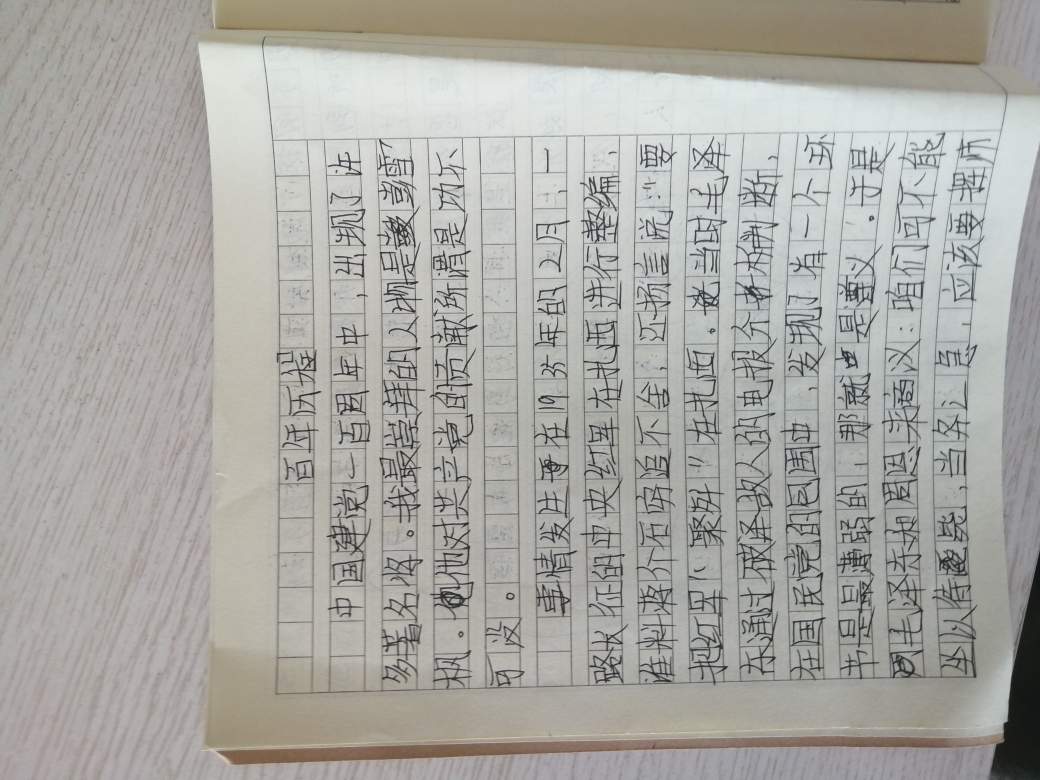 百年历程
中国建党一百周年中，出现了许
多著名将。我最崇拜的人物是彭雪
枫。他对共产党的贡献所谓是功不
可没。
事情发生在1935年的2月，一
路长征的中央红军在扎西进行整编，
谁料蒋介石穷追不舍，还扬言说：“要
把红军“聚歼”在扎西。当时毛泽
东通过破译敌人的电报分析判断，
在国民党的包围中，发现了有一个环
节是最薄弱的，那就是遵义。于是
毛泽东和周恩来商议：咱们可不能
坐以待毙，当务之急，应该要挥师